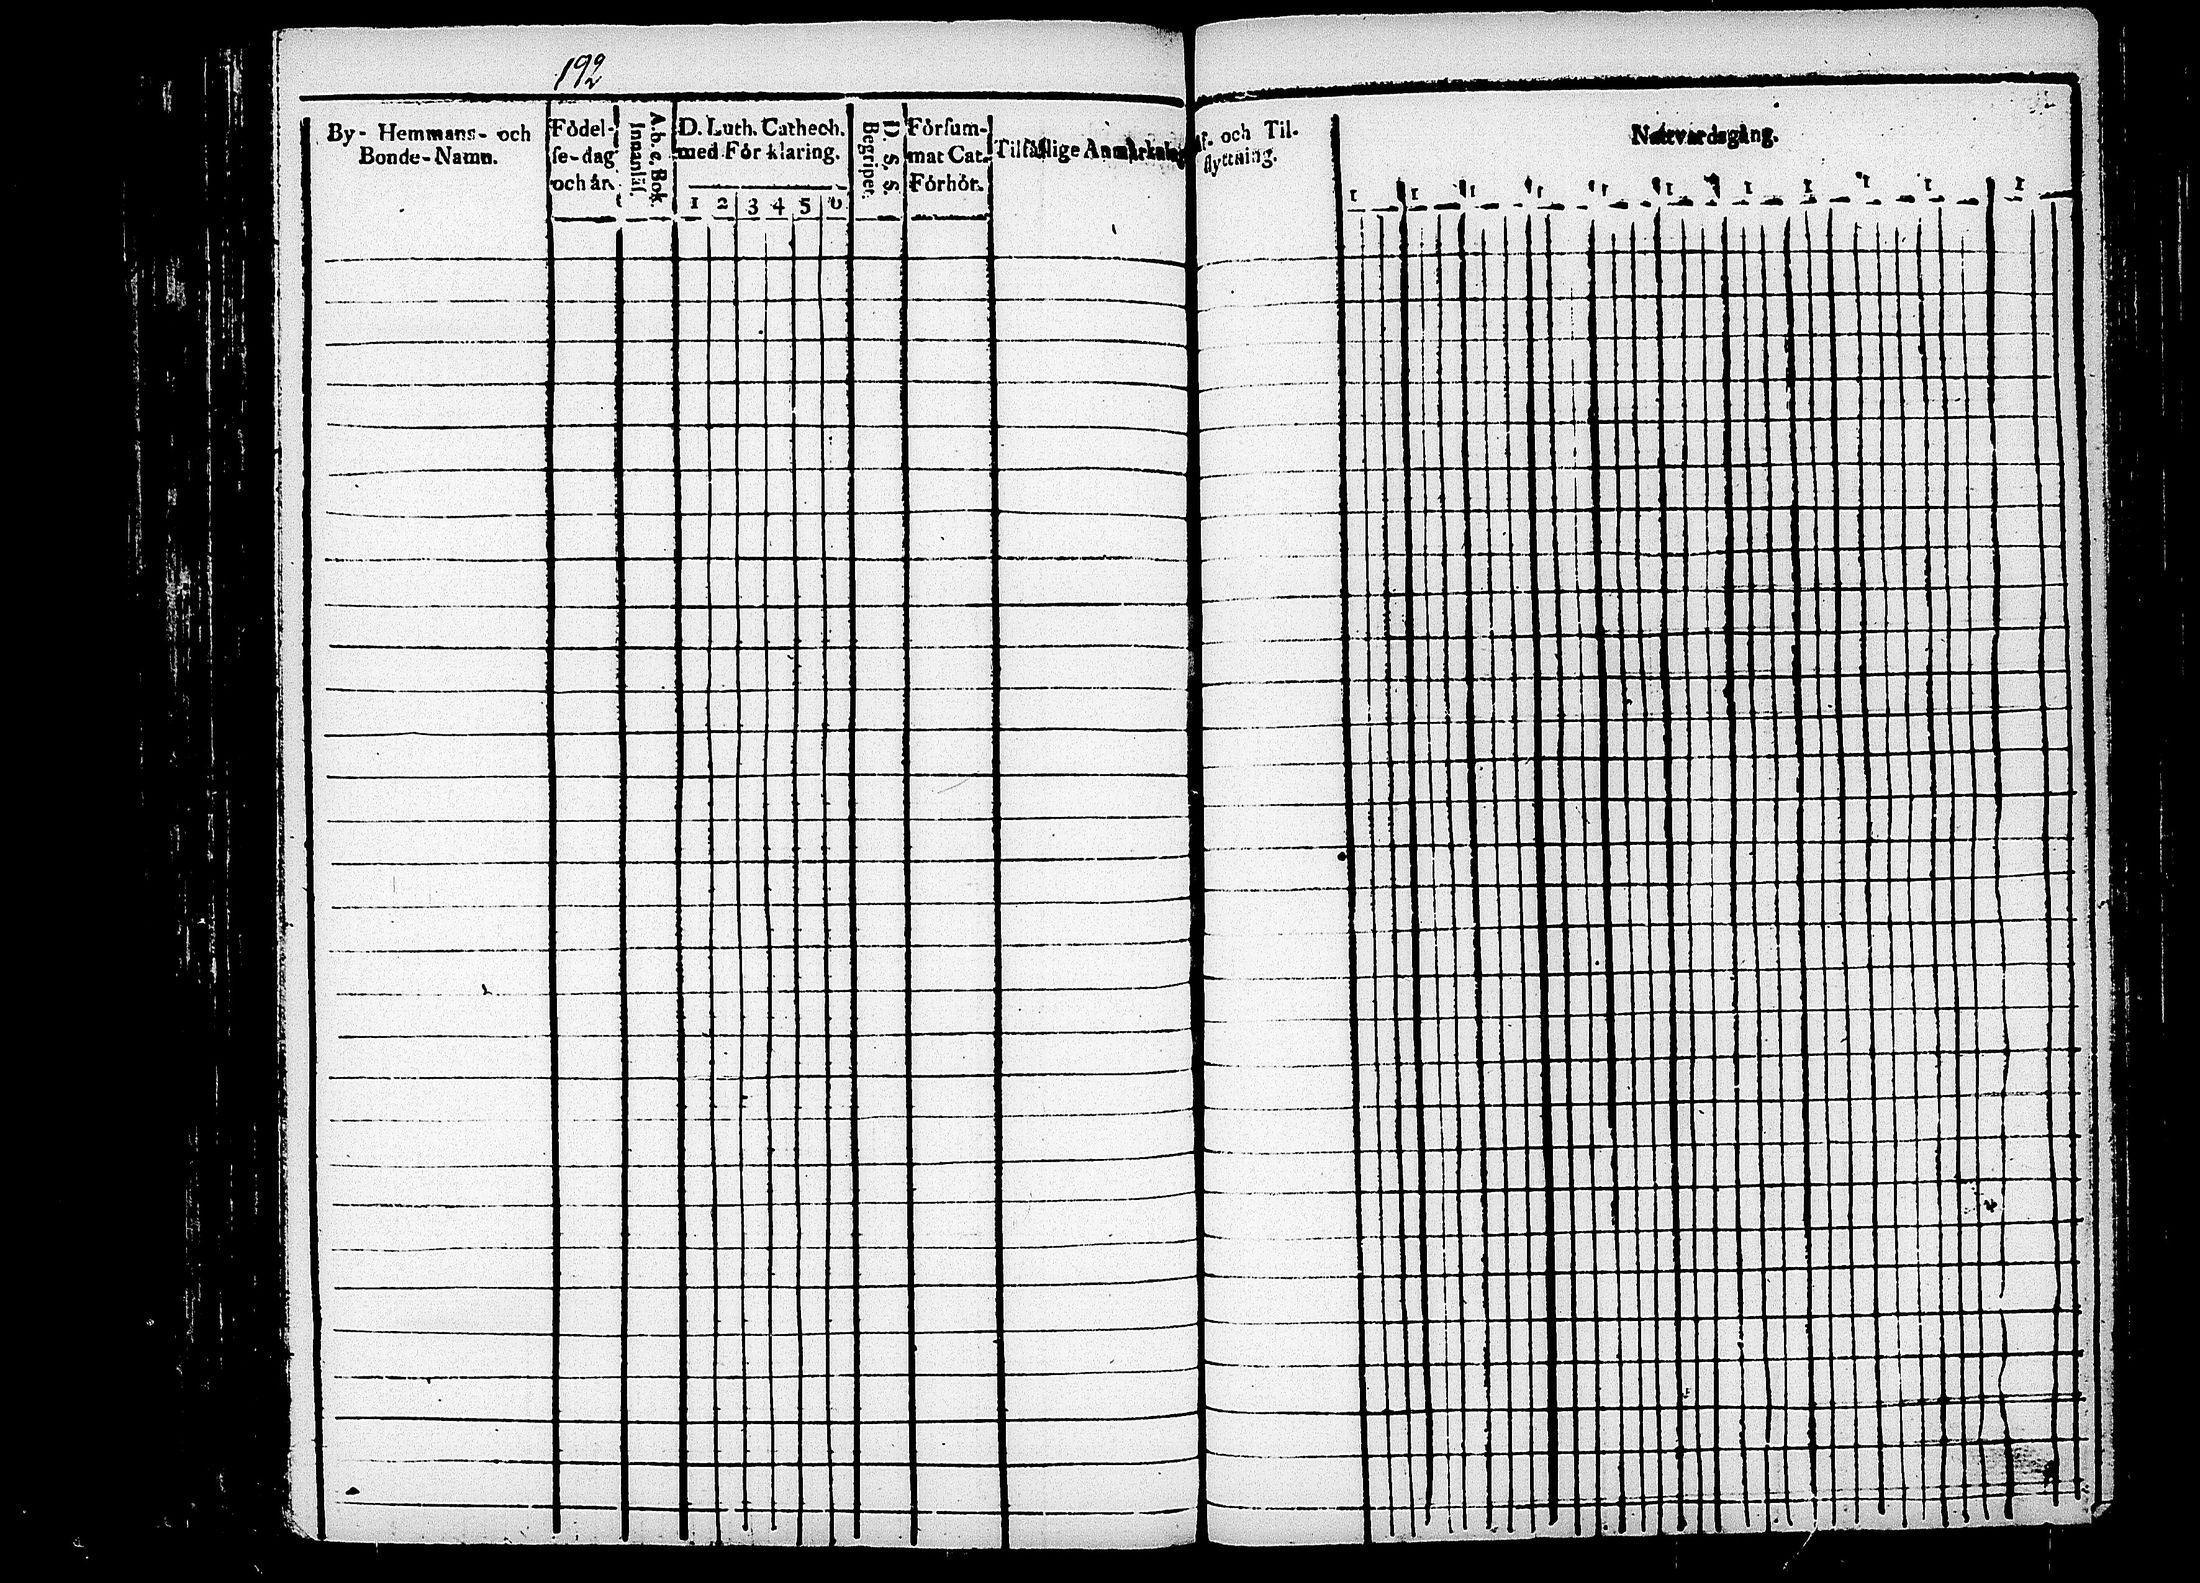 192
By- Hemmans- och
Bonde-Namn.
Födel-
se-dag
och år.
A.b.c. Bok.
Innanläs.
D. Luth. Cathech.
med Förklaring.
1 2 3 4 5 6
D. S. S.
Begriper.
Försum-
mat Cat.
Förhör.
Tilfällige Anmärkning
Af- och Til-
flyttning.
Nattvardsgång.
1 1 1 1 1 1 1 1 1 1 1 1